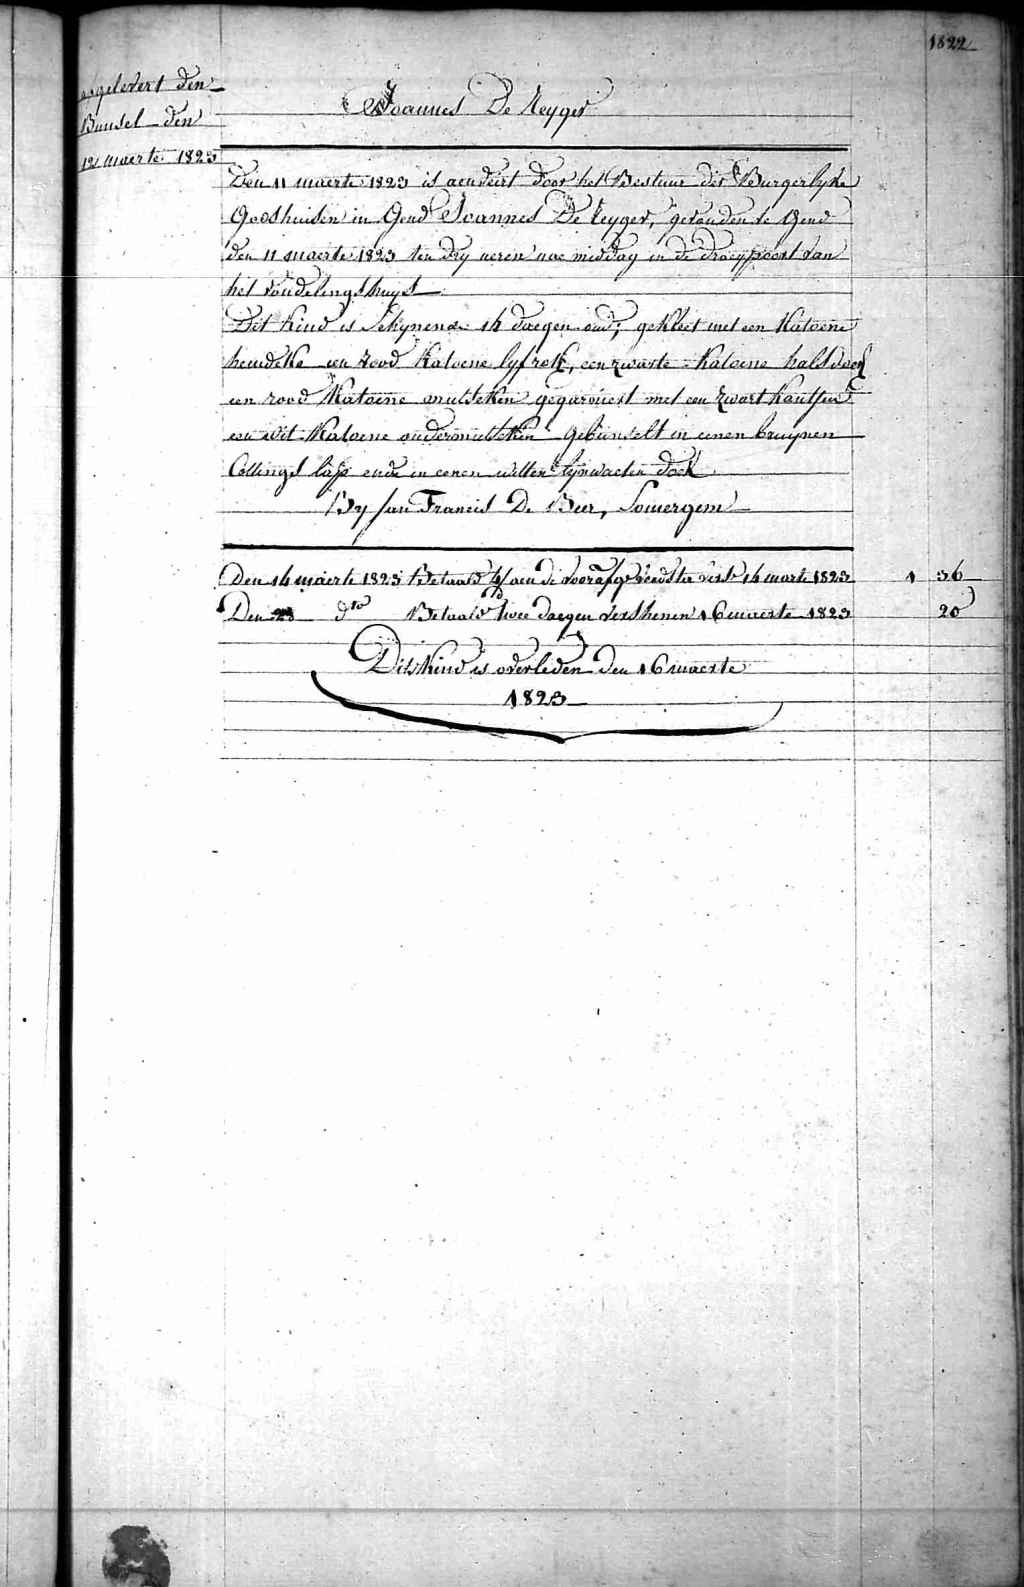 1822
afgelevert den
Bunsel den
12 maerte 1823
Joannes De Reyger
Den 11 maerte 1823 is aenveirt door het Bestuur der Burgerlyke
Godshuisen in Gend Joannes De Reyger, gevonden te Gend
den 11 maerte 1823 ten dry ueren nae middag in de draeypoort van
het vondelingshuys
Dit kind is schynende 14 daegen oud, gekleet met een katoene
hemdeke een rood katoene lyfrok, een zwarte katoene halsdoek
een rood katoene mutseken gegarniert met een zwart kantjen
een wit katoene ondermutseken gebunselt in eenen bruynen
lap ende in eenen witten lynwaeten doek
By Jan Francis De Beer, Somergem
Den 14 maerte 1823 Betaald aen de 14 marte 1823 1 36
Den do Betaald twee daegen verschenen 16 maerte 1823 20
Dit kind is overleden den 16 maerte
1823